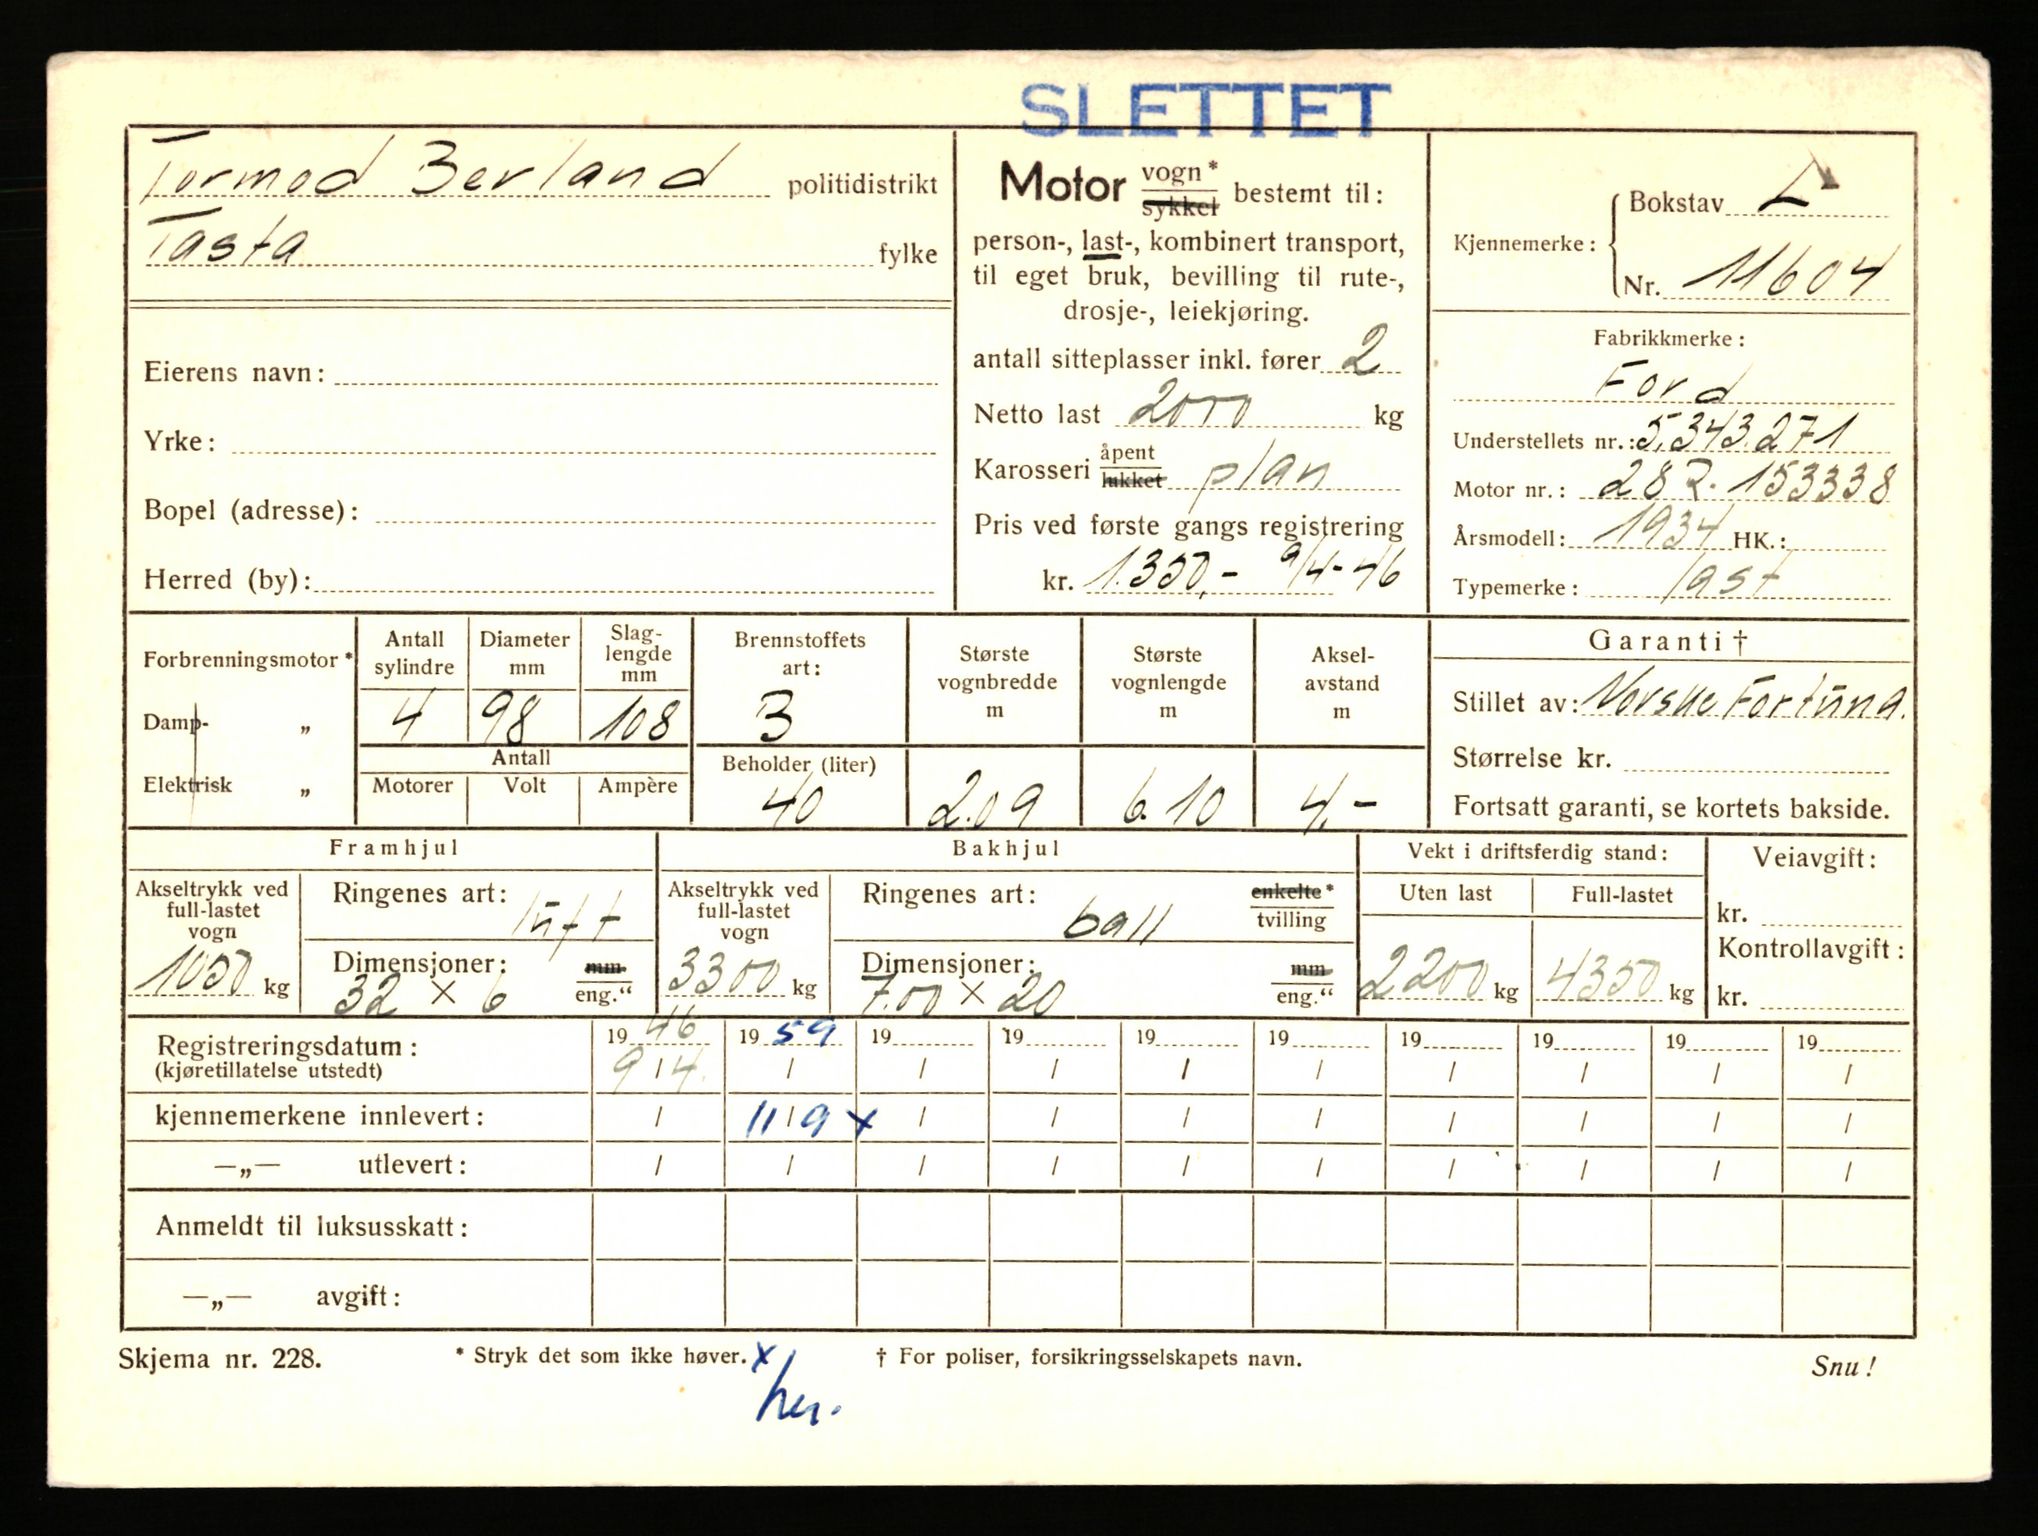 SLETTET
Tormod Berland politidistrikt
Tasta fylke
Eierens navn:
Yrke:
Bopel (adresse):
Herred (by):
Motor vogn* sykkel bestemt til:
person-, last-, kombinert transport,
til eget bruk, bevilling til rute-,
drosje-, leiekjøring.
antall sitteplasser inkl. fører 2
Netto last 2000 kg
Karosseri åpent lukket plan
Pris ved første gangs registrering
kr. 1.350,- 9/4-46
Kjennemerke: Bokstav L
Nr. 11604
Fabrikkmerke:
Ford
Understellets nr.: 5.343.271
Motor nr.: 28 R. 153338
Årsmodell: 1934 HK.:
Typemerke: last
Forbrenningsmotor*
Damp- „
Elektrisk „
Antall sylindre Diameter mm Slag-lengde mm
4 98 108
Antall
Motorer Volt Ampère
Brennstoffets art:
3
Beholder (liter)
40
Største vognbredde m
2.09
Største vognlengde m
6.10
Aksel-avstand m
4,-
Garanti †
Stillet av: Norske Fortuna.
Størrelse kr.
Fortsatt garanti, se kortets bakside.
Framhjul
Akseltrykk ved full-lastet vogn
1050 kg
Ringenes art: luft
Dimensjoner: mm eng."
32 × 6
Bakhjul
Akseltrykk ved full-lastet vogn
3300 kg
Ringenes art: ball enkelte* tvilling
Dimensjoner: mm eng."
7.00 × 20
Vekt i driftsferdig stand:
Uten last Full-lastet
2200 kg 4350 kg
Veiavgift:
kr.
Kontrollavgift:
kr.
Registreringsdatum: 19 46 19 59 19 19 19 19 19 19 19 19
(kjøretillatelse utstedt) 9/4. / / / / / / / / /
kjennemerkene innlevert: / 11/9 x / / / / / / / /
—„— utlevert: / / / / / / / / / /
Anmeldt til luksusskatt:
—„— avgift:
Skjema nr. 228. * Stryk det som ikke høver. x † For poliser, forsikringsselskapets navn. Snu!
her.